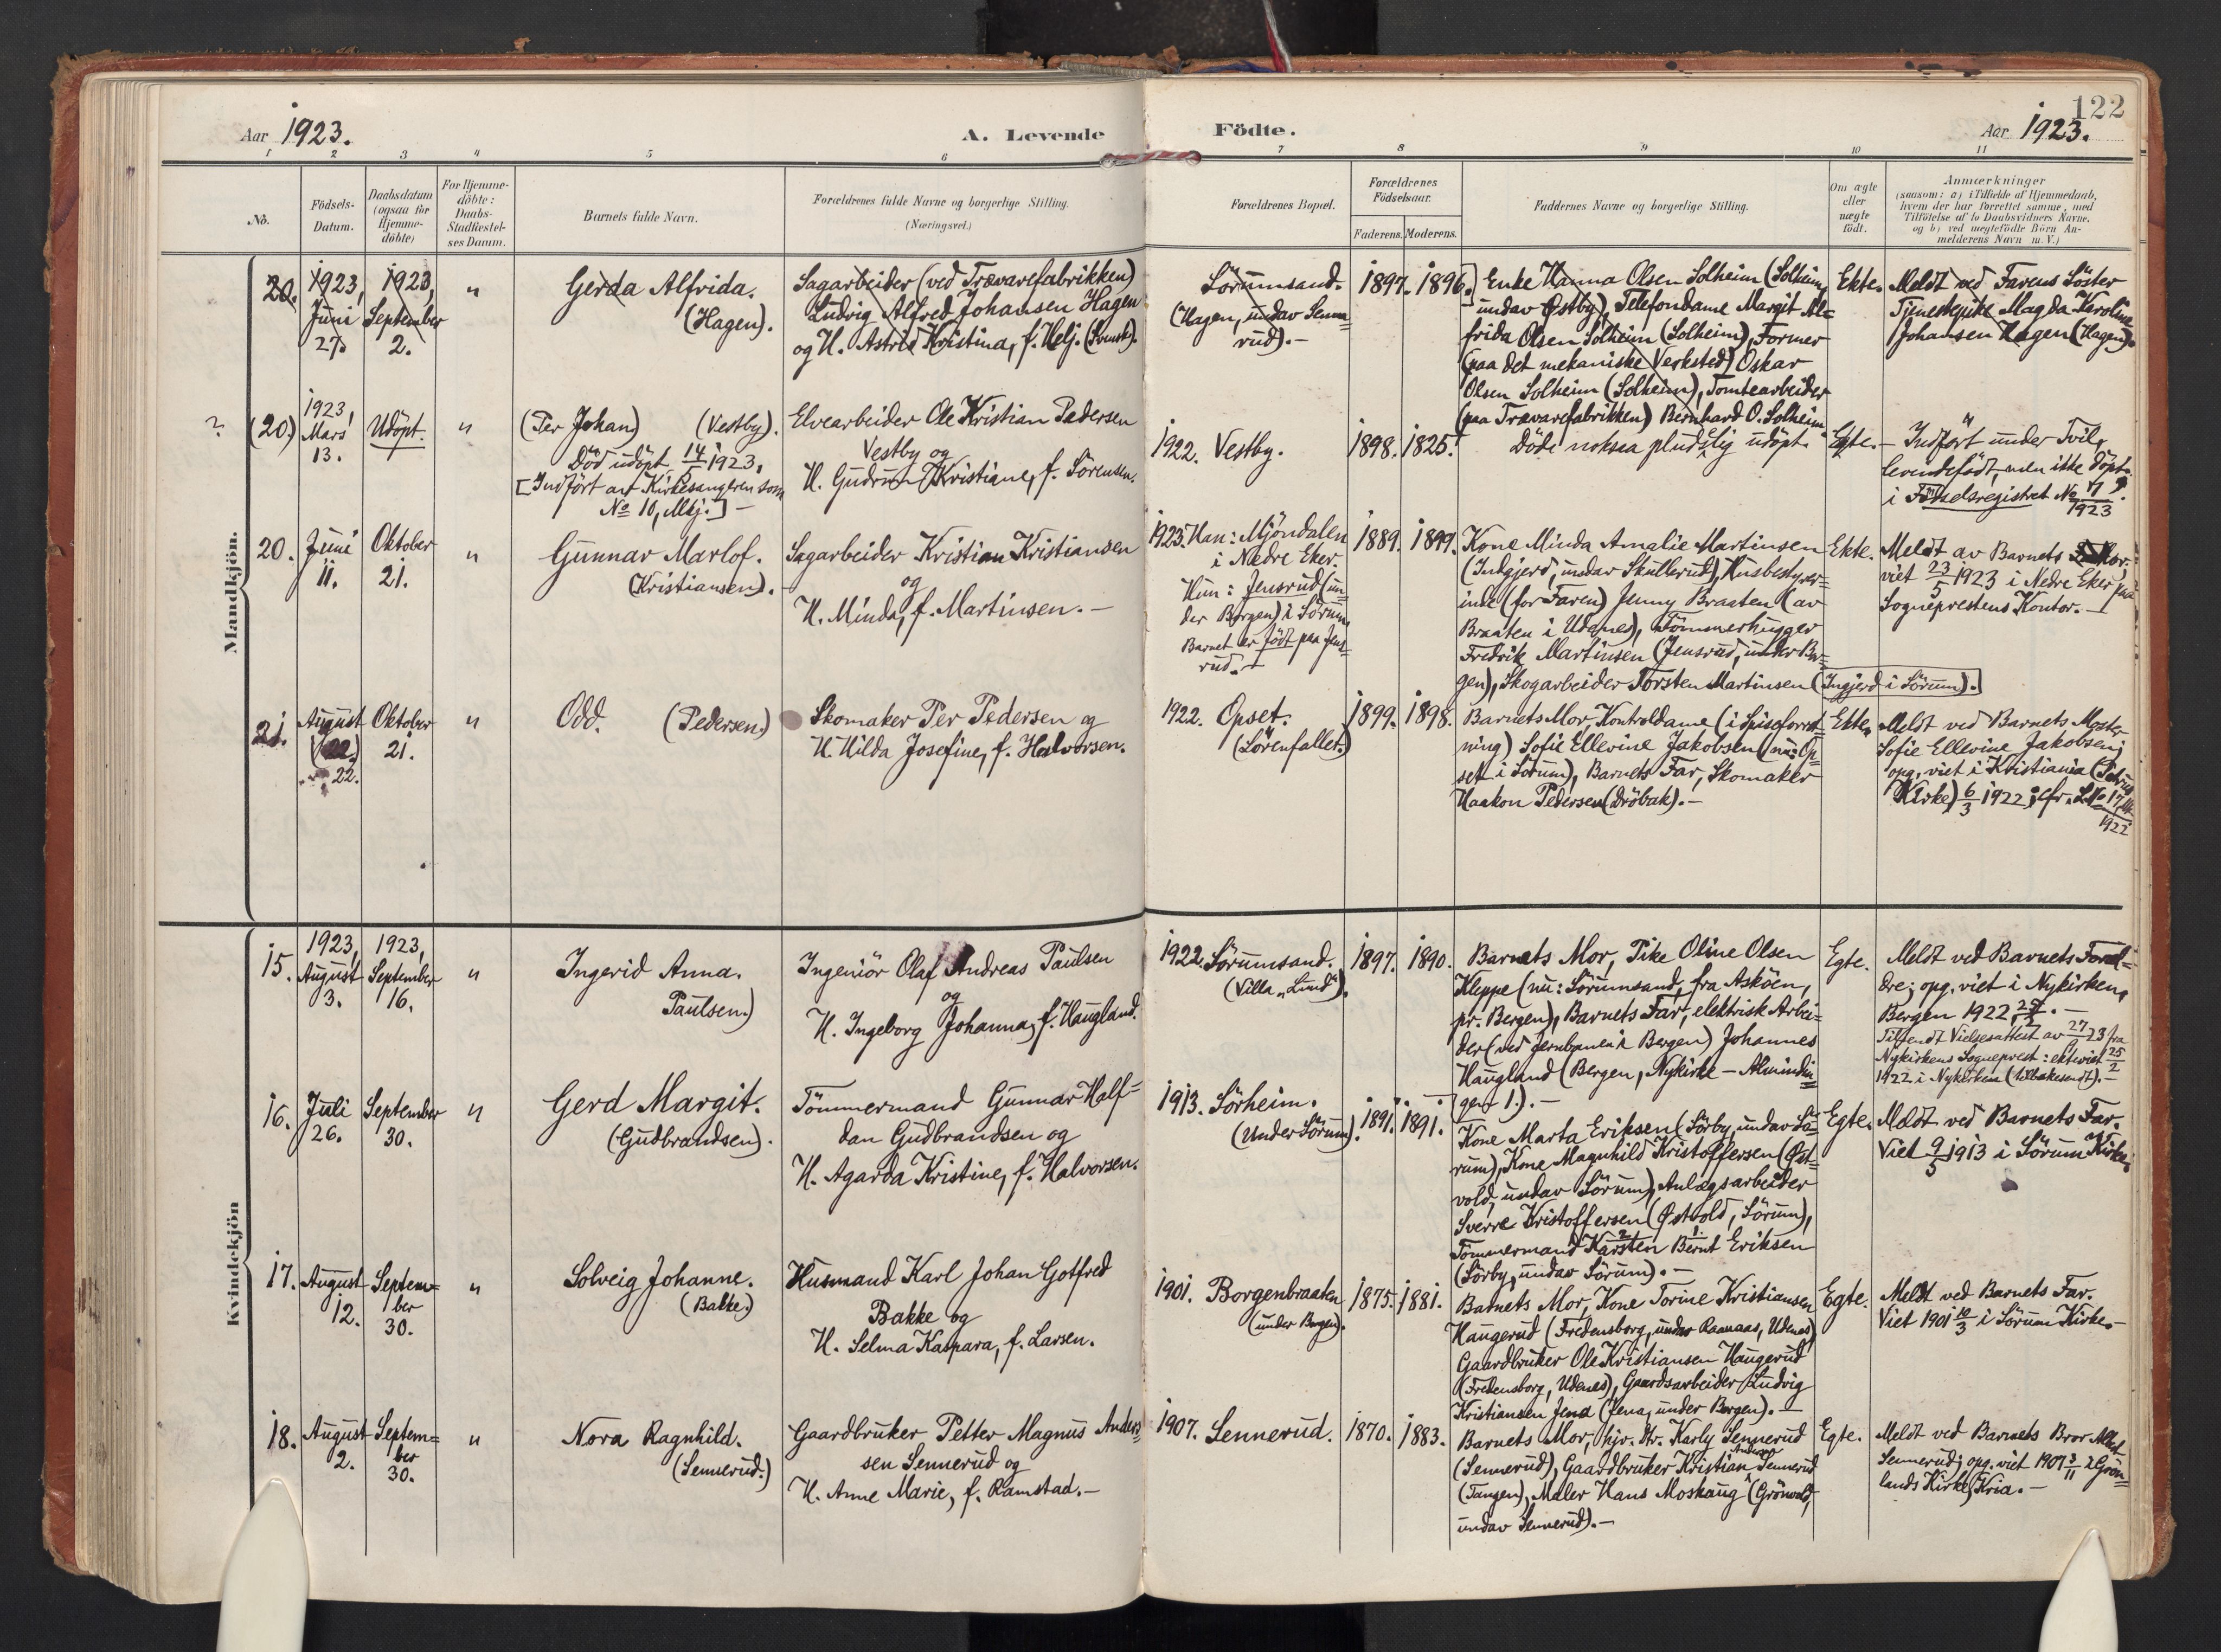 122
Aar 1923.
A. Levende Födte.
Aar 1923.
1 2 3 4 5 6 7 8 9 10 11
No.
Födsels-
Datum.
Daabsdatum
(ogsaa for
Hjemme-
döbte)
For Hjemme-
döbte:
Daabs-
Stadfæstel-
ses Datum.
Barnets fulde Navn.
Forældrenes fulde Navne og borgerlige Stilling.
(Næringsvei.)
Forældrenes Bopæl.
Forældrenes
Födselsaar.
Faderens. Moderens.
Faddernes Navne og borgerlige Stilling.
Om ægte
eller
uægte
födt.
Anmærkninger
(saasom: a) i Tilfælde af Hjemmedaab,
hvem der har forrettet samme, med
Tilföielse af to Daabsvidners Navne,
og b) ved uegtefödte Börn An-
melderens Navn m. V.)
Mandkjön.
20.
1923,
Juni
27.
1923,
September
2.
"
Gerda Alfrida.
(Hagen).
Sagarbeider (ved Trævarefabrikken)
Ludvig Alfred Johansen Hagen
og H. Astrid Kristina, f. Helj. (Svensk).
Sörumsand.
(Hagen, undav Senne=
rud). —
1897. 1896.
Enke Hanna Olsen Solheim (Solheim,
undav Østby), Telefondame Margit Al=
frida Olsen Solheim (Solheim), Former
(paa det mekaniske Verksted) Oskar
Olsen Solheim (Solheim), Tomtearbeider
(paa Trævarefabrikken) Bernhard O. Solheim.
Ekte.
Meldt ved Farens Söster
Tjenestepike Magda Karoline
Johansen Hagen (Hagen).
?
(20.)
1923,
Mars
13.
Udöpt.
"
(Per Johan) (Vestby).
Död udöpt 14/5 1923,
[Indfört av Kirkesangeren som
No 10, Mkj.] —
Elvearbeider Ole Kristian Pedersen
Vestby og
H. Gudrun Kristiane, f. Sörensen.
1922. Vestby.
1898. 1825.
Döde noksaa pludselig udöpt.
Egte.
— Indfört under Tvil,
levendefödt, men ikke döpt.
i Födselsregistret No
1923
20.
Juni
11.
Oktober
21.
"
Gunnar Marlof.
(Kristiansen).
Sagarbeider Kristian Kristiansen
og
H. Minda, f. Martinsen. —
1923. Han: Mjöndalen
i Nedre Eker.
Hun: Jensrud (un=
der Borgen) i Sörum.
Barnet er födt paa Jens=
rud. —
1889. 1899.
Kone Minda Amalie Martinsen
(Indgjerd, undav Skullerud), Husbestyrer=
inde (for Faren) Jenny Braaten (av
Braaten i Udenes), Tömmerhugger
Fredrik Martinsen (Jensrud, under Bor=
gen), Skogarbeider Torsten Martinsen (Ingjerd i Sörum).
Ekte.
Meldt av Barnets Mor.
viet 23/5 1923 i Nedre Eker paa
Sogneprestens Kontor. —
21.
August
22.
Oktober
21.
"
Odd. (Pedersen.)
Skomaker Per Pedersen og
H. Hilda Josefine, f. Halvorsen.
1922. Opset.
(Lörenfallet.)
1899. 1898.
Barnets Mor, Kontroldame (i Spiseforret=
ning) Sofie Ellevine Jakobsen (nu: Op=
set i Sörum), Barnets Far, Skomaker
Haakon Pedersen (Dröbak). —
Ekte.
Meldt ved Barnets Moster
Sofie Ellevine Jakobsen;
opg. viet i Kristiania
Kirke) 6/3 1922;
1922
Kvindekjön
15.
1923,
August
3.
1923,
September
16.
"
Ingerid Anna.
Paulsen.)
Ingeniör Olaf Andreas Paulsen
og
H. Ingeborg Johanna, f. Haugland.
1922. Sörumsand.
(Villa „Lund").
1897. 1890.
Barnets Mor, Pike Oline Olsen
Kleppe (nu: Sörumsand, fra Asköen,
pr. Bergen), Barnets Far, elektrisk Arbei=
der (ved Jernbanen i Bergen) Johannes
Haugland (Bergen, Nykirke – Almindin=
gen 1.). —
Egte.
Meldt ved Barnets Foræl=
dre; opg. viet i Nykirken,
Bergen 1922, —
Tilsendt Vielsesattest av 27/ 23 fra
Nykirkens Sogneprest: ekteviet 25/2
1922 i Nykirken (tilbakesendt). —
16.
Juli
26.
September
30.
"
Gerd Margit.
(Gudbrandsen).
Tömmermand Gunnar Half=
dan Gudbrandsen og
H. Agarda Kristine, f. Halvorsen.
1913. Sörheim.
(Under Sörum).
1891. 1891.
Kone Marta Eriksen (Sörby, undav Sö=
rum), Kone Magnhild Kristoffersen (Øst=
vold, undav Sörum), Anlægsarbeider
Sverre Kristoffersen (Østvold, Sörum),
Tömmermand Karsten Bernt Eriksen
(Sörby, undav Sörum). —
Egte.
Meldt ved Barnets Far.
Viet 9/5 1913 i Sörum Kirke.
17.
August
12.
Septem=
ber
30.
"
Solveig Johanne.
(Bakke.)
Husmand Karl Johan Gotfred
Bakke og
H. Selma Kaspara, f. Larsen.
1901. Borgenbraaten
(under Borgen).
1875. 1881.
Barnets Mor, Kone Torine Kristiansen
Haugerud (Fredensborg, undav Raanaas, Udenes)
Gaardbruker Ole Kristiansen Haugerud
(Fredensborg, Udenes), Gaardsarbeider Ludvig
Kristiansen Jena (Jena, under Borgen). —
Egte.
Meldt ved Barnets Far.
Viet 1901 10/3 i Sörum Kirke. —
18.
August
2.
Septem=
ber
30.
"
Nora Ragnhild.
(Sennerud.)
Gaardbruker Petter Magnus Anders=
sen Sennerud og
H. Anne Marie, f. Ramstad. —
1907. Sennerud.
1870. 1883.
Barnets Mor, hjv. Dtr. Karly Sennerud
(Sennerud), Gaardbruker Kristian Andersen Sennerud
(Tangen), Maler Hans Moshaug (Grönvold,
undav Sennerud). —
Egte.
Meldt ved Barnets Bror
Sennerud; opg. viet 1907 3/11 i Grön=
lands Kirke, Kria. —